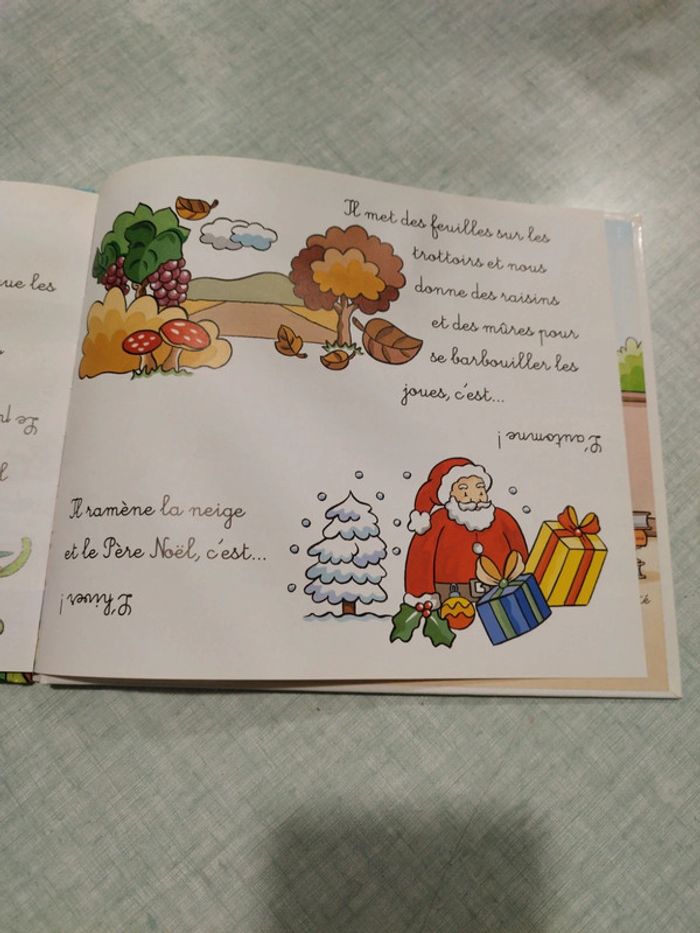 que les
Il met des feuilles sur les
trottoirs et nous
donne des raisins
et des mûres pour
se barbouiller les
joues, c'est...
L'automne !
Il ramène la neige
et le Père Noël, c'est...
L'hiver !